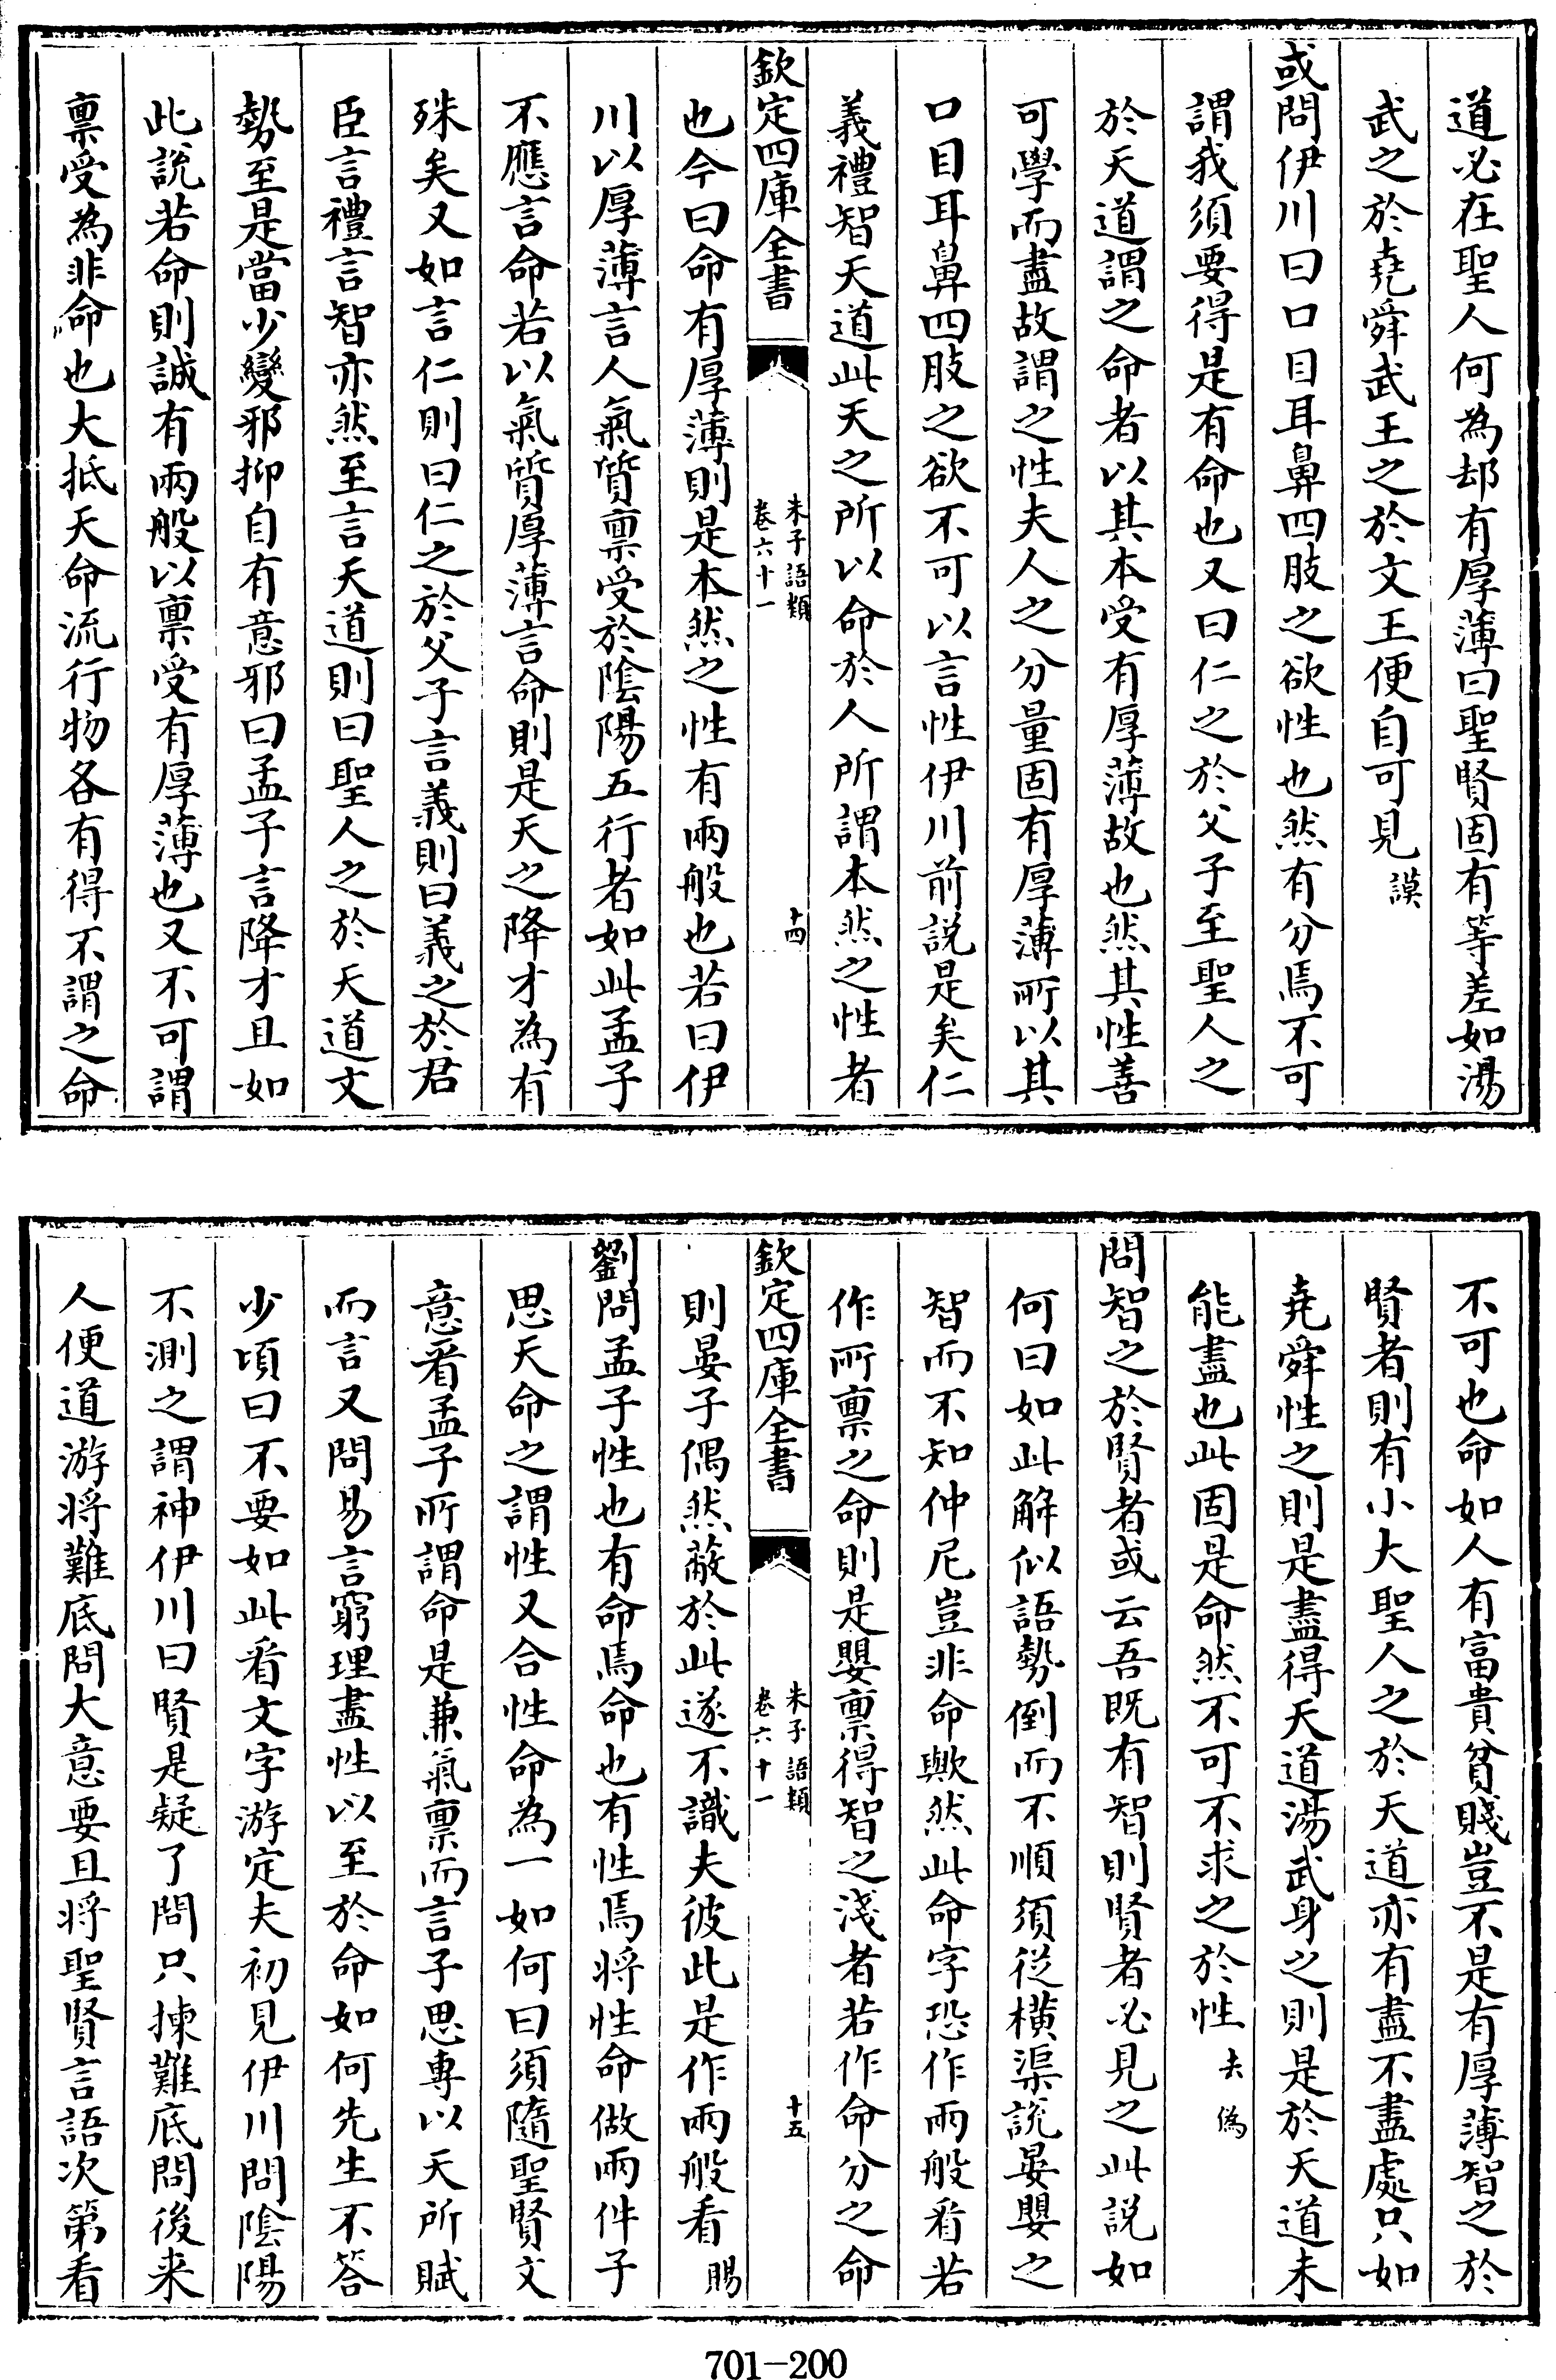 道必在聖人何為却有厚薄曰聖賢固有等差如湯
武之於堯舜武王之於文王便自可見謨
或問伊川曰口目耳鼻四肢之欲性也然有分焉不可
謂我須要得是有命也又曰仁之於父子至聖人之
於天道謂之命者以其本受有厚薄故也然其性善
可學而盡故謂之性夫人之分量固有厚薄所以其
口目耳鼻四肢之欲不可以言性伊川前説是矣仁
義禮智天道此天之所以命於人所謂本然之性者
欽定四庫全書
朱子語類
卷六十一
十四
也今曰命有厚薄則是本然之性有兩般也若曰伊
川以厚薄言人氣質稟受於陰陽五行者如此孟子
不應言命若以氣質厚薄言命則是天之降才為有
殊矣又如言仁則曰仁之於父子言義則曰義之於君
臣言禮言智亦然至言天道則曰聖人之於天道文
勢至是當少變邪抑自有意邪曰孟子言降才且如
此説若命則誠有兩般以稟受有厚薄也又不可謂
稟受為非命也大抵天命流行物各有得不謂之命
不可也命如人有富貴貧賤豈不是有厚薄智之於
賢者則有小大聖人之於天道亦有盡不盡處只如
堯舜性之則是盡得天道湯武身之則是於天道未
能盡也此固是命然不可不求之於性去偽
問智之於賢者或云吾既有智則賢者必見之此説如
何曰如此解似語勢倒而不順須從橫渠説晏嬰之
智而不知仲尼豈非命歟然此命字恐作兩般看若
作所稟之命則是嬰稟得智之淺者若作命分之命
欽定四庫全書
朱子語類
卷六十一
十五
則晏子偶然蔽於此遂不識夫彼此是作兩般看賜
劉問孟子性也有命焉命也有性焉將性命做兩件子
思天命之謂性又合性命為一如何曰須隨聖賢文
意看孟子所謂命是兼氣稟而言子思專以天所賦
而言又問易言窮理盡性以至於命如何先生不答
少頃曰不要如此看文字游定夫初見伊川問陰陽
不測之謂神伊川曰賢是疑了問只揀難底問後来
人便道游將難底問大意要且將聖賢言語次第看
701-200